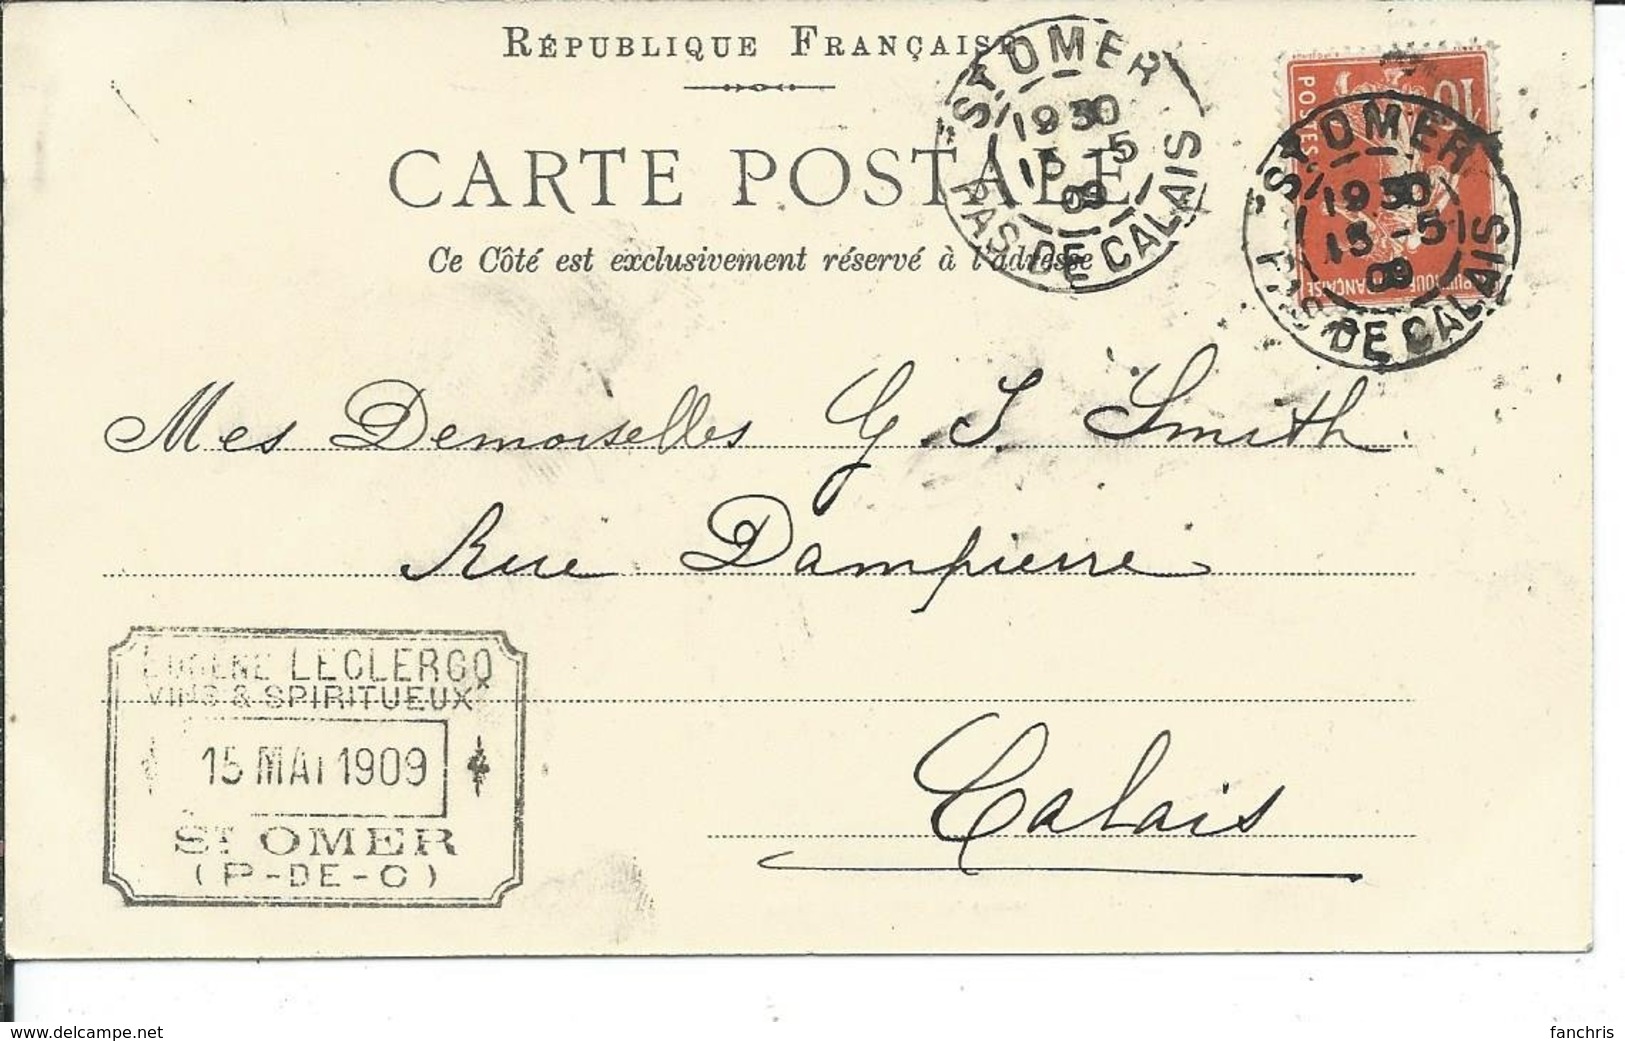 RÉPUBLIQUE FRANÇAISE
CARTE POSTALE
Ce Côté est exclusivement réservé à l'adresse
ST OMER
1930
15-5
09
PAS DE CALAIS
10
POSTES
ST OMER
1930
15-5
09
PAS DE CALAIS
Mes Demoiselles G. S. Smith.
Rue Dampierre
Calais
EUGÈNE LECLERCQ
VINS & SPIRITUEUX
15 MAI 1909
ST OMER
(P-DE-C)
www.delcampe.net
fanchris